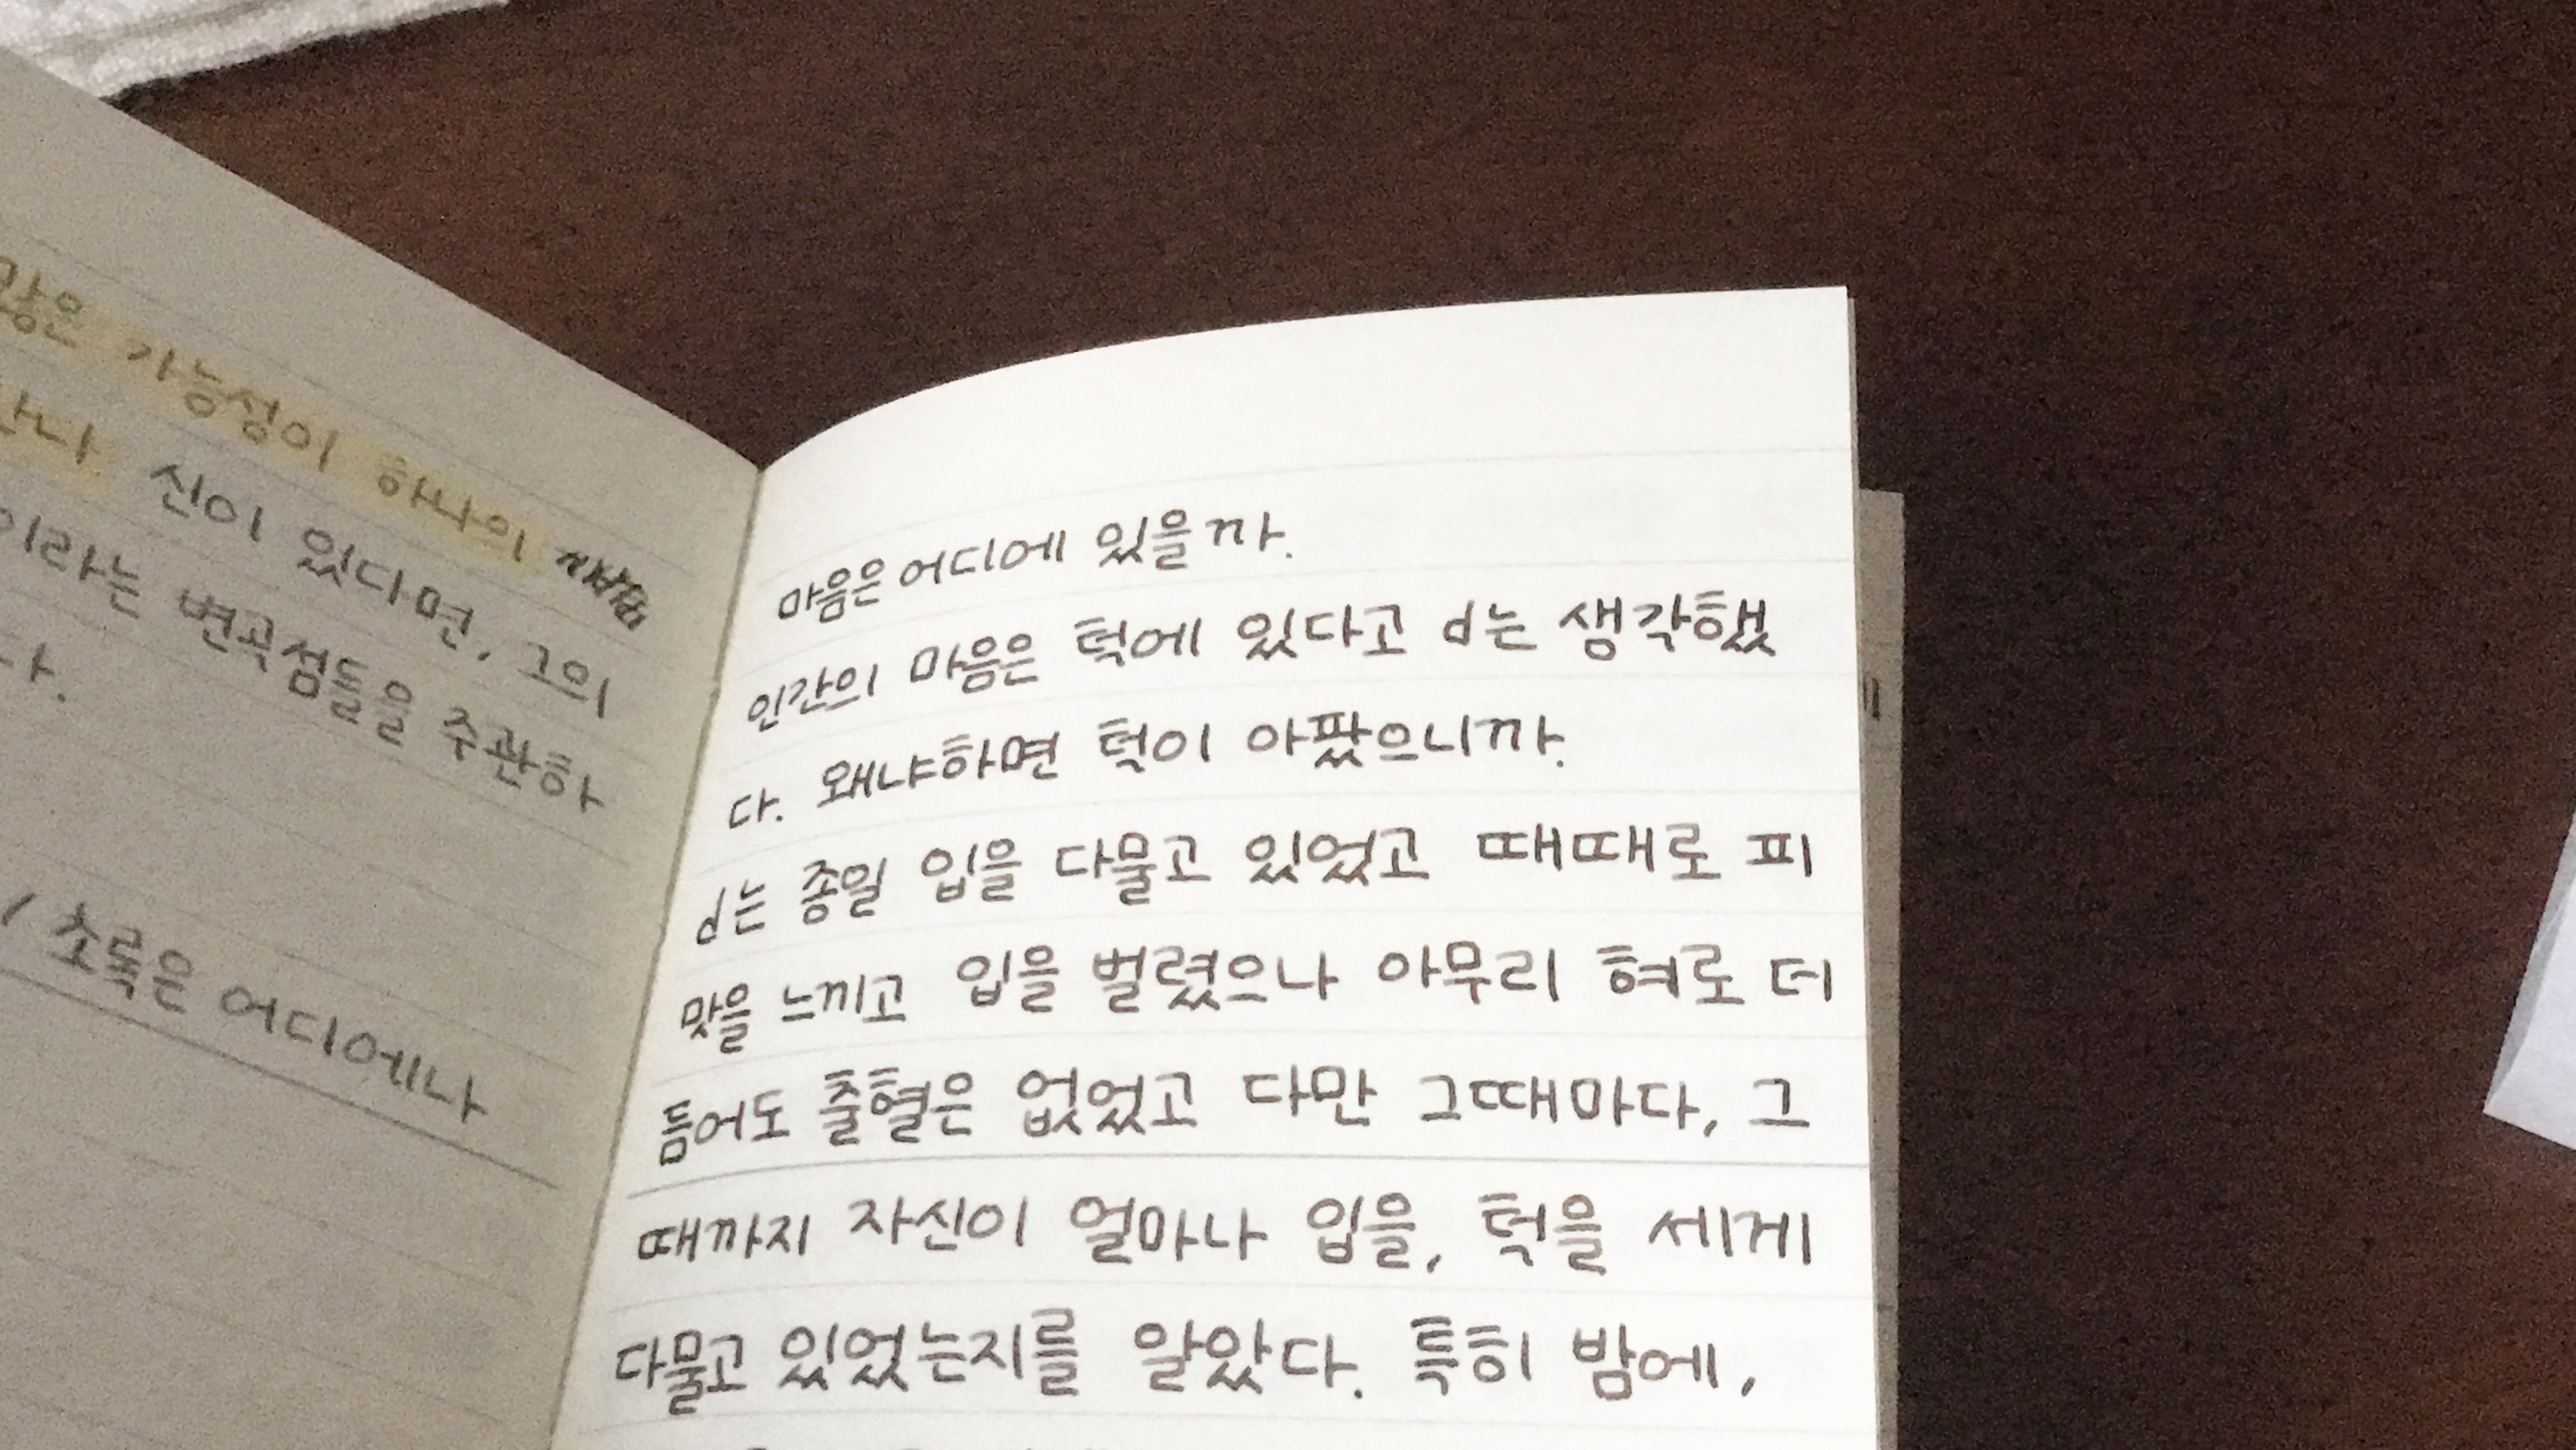 가능성이 하나의
신이 있다면, 그의
이라는 변곡점들을 주관하
다.
/ 소록은 어디에나
마음은 어디에 있을까.
인간의 마음은 턱에 있다고 d는 생각했
다. 왜냐하면 턱이 아팠으니까.
d는 종일 입을 다물고 있었고 때때로 피
맛을 느끼고 입을 벌렸으나 아무리 혀로 더
듬어도 출혈은 없었고 다만 그때마다, 그
때까지 자신이 얼마나 입을, 턱을 세게
다물고 있었는지를 알았다. 특히 밤에,